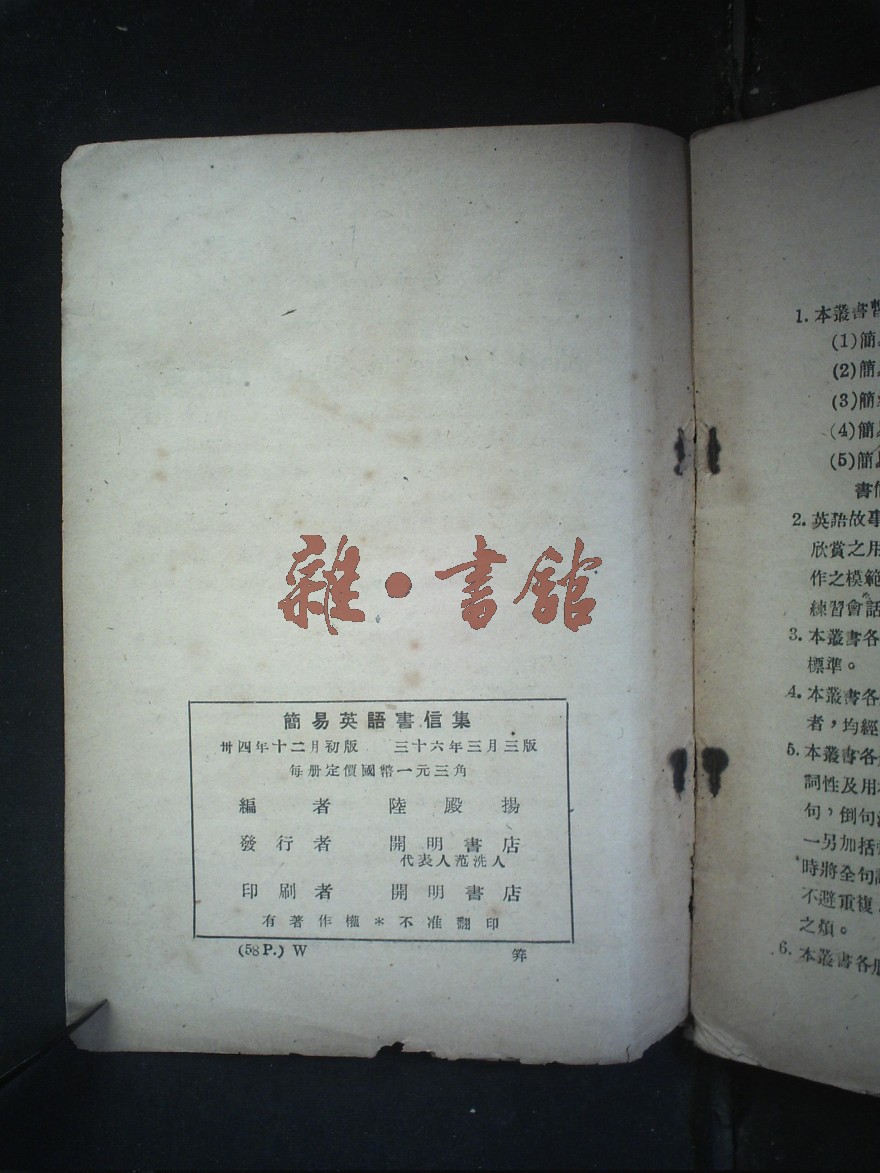 雜·書館
簡易英語書信集
卅四年十二月初版 三十六年三月三版
每册定價國幣一元三角
編者 陸殿揚
發行者 開明書店
代表人范洗人
印刷者 開明書店
有著作權＊不准翻印
(58 P.) W
1. 本叢書暫
(1)簡
(2)簡
(3)簡
(4)簡
(5)簡
書信
2. 英語故事
欣賞之用
作之模範
練習會話
3. 本叢書各
標準。
4. 本叢書各
者，均經
5. 本叢書各
詞性及用
句，倒句
一另加括
時將全句
不避重複
之煩。
6. 本叢書各册